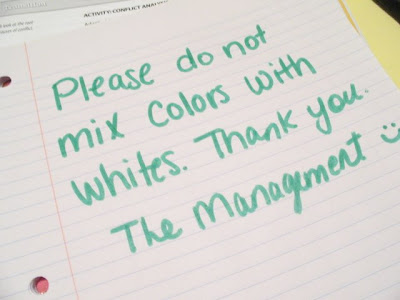 ACTIVITY: CONFLICT
Please do not
mix Colors with
whites. Thank you.
The Management